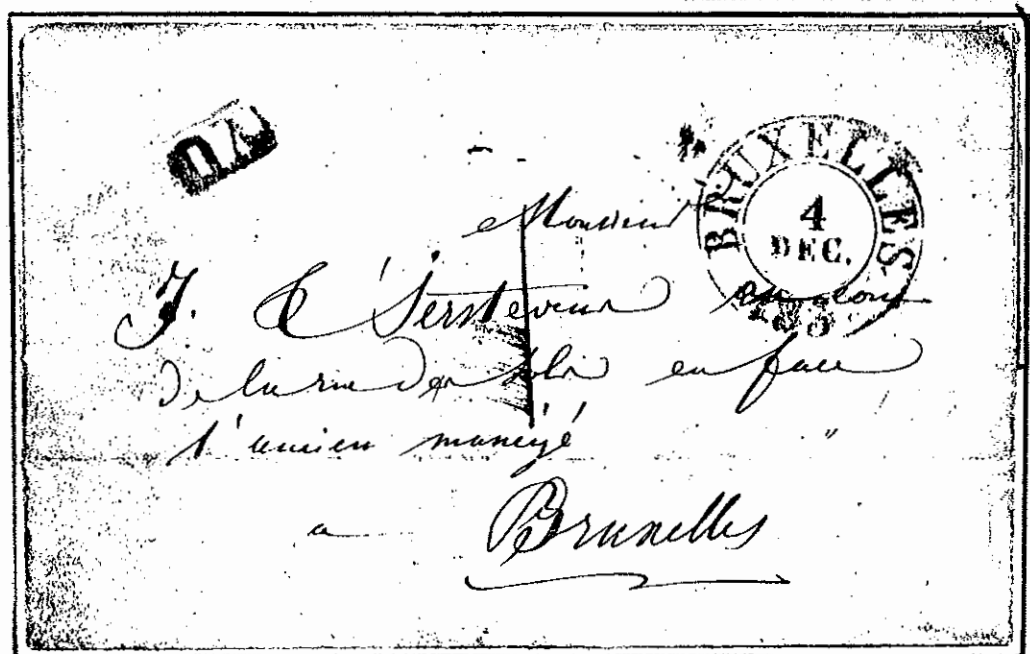 BRUXELLES
4
DEC.
Monsieur
J. T'Serstevens
de la rue des en face
l'ancien manège
a Bruxelles